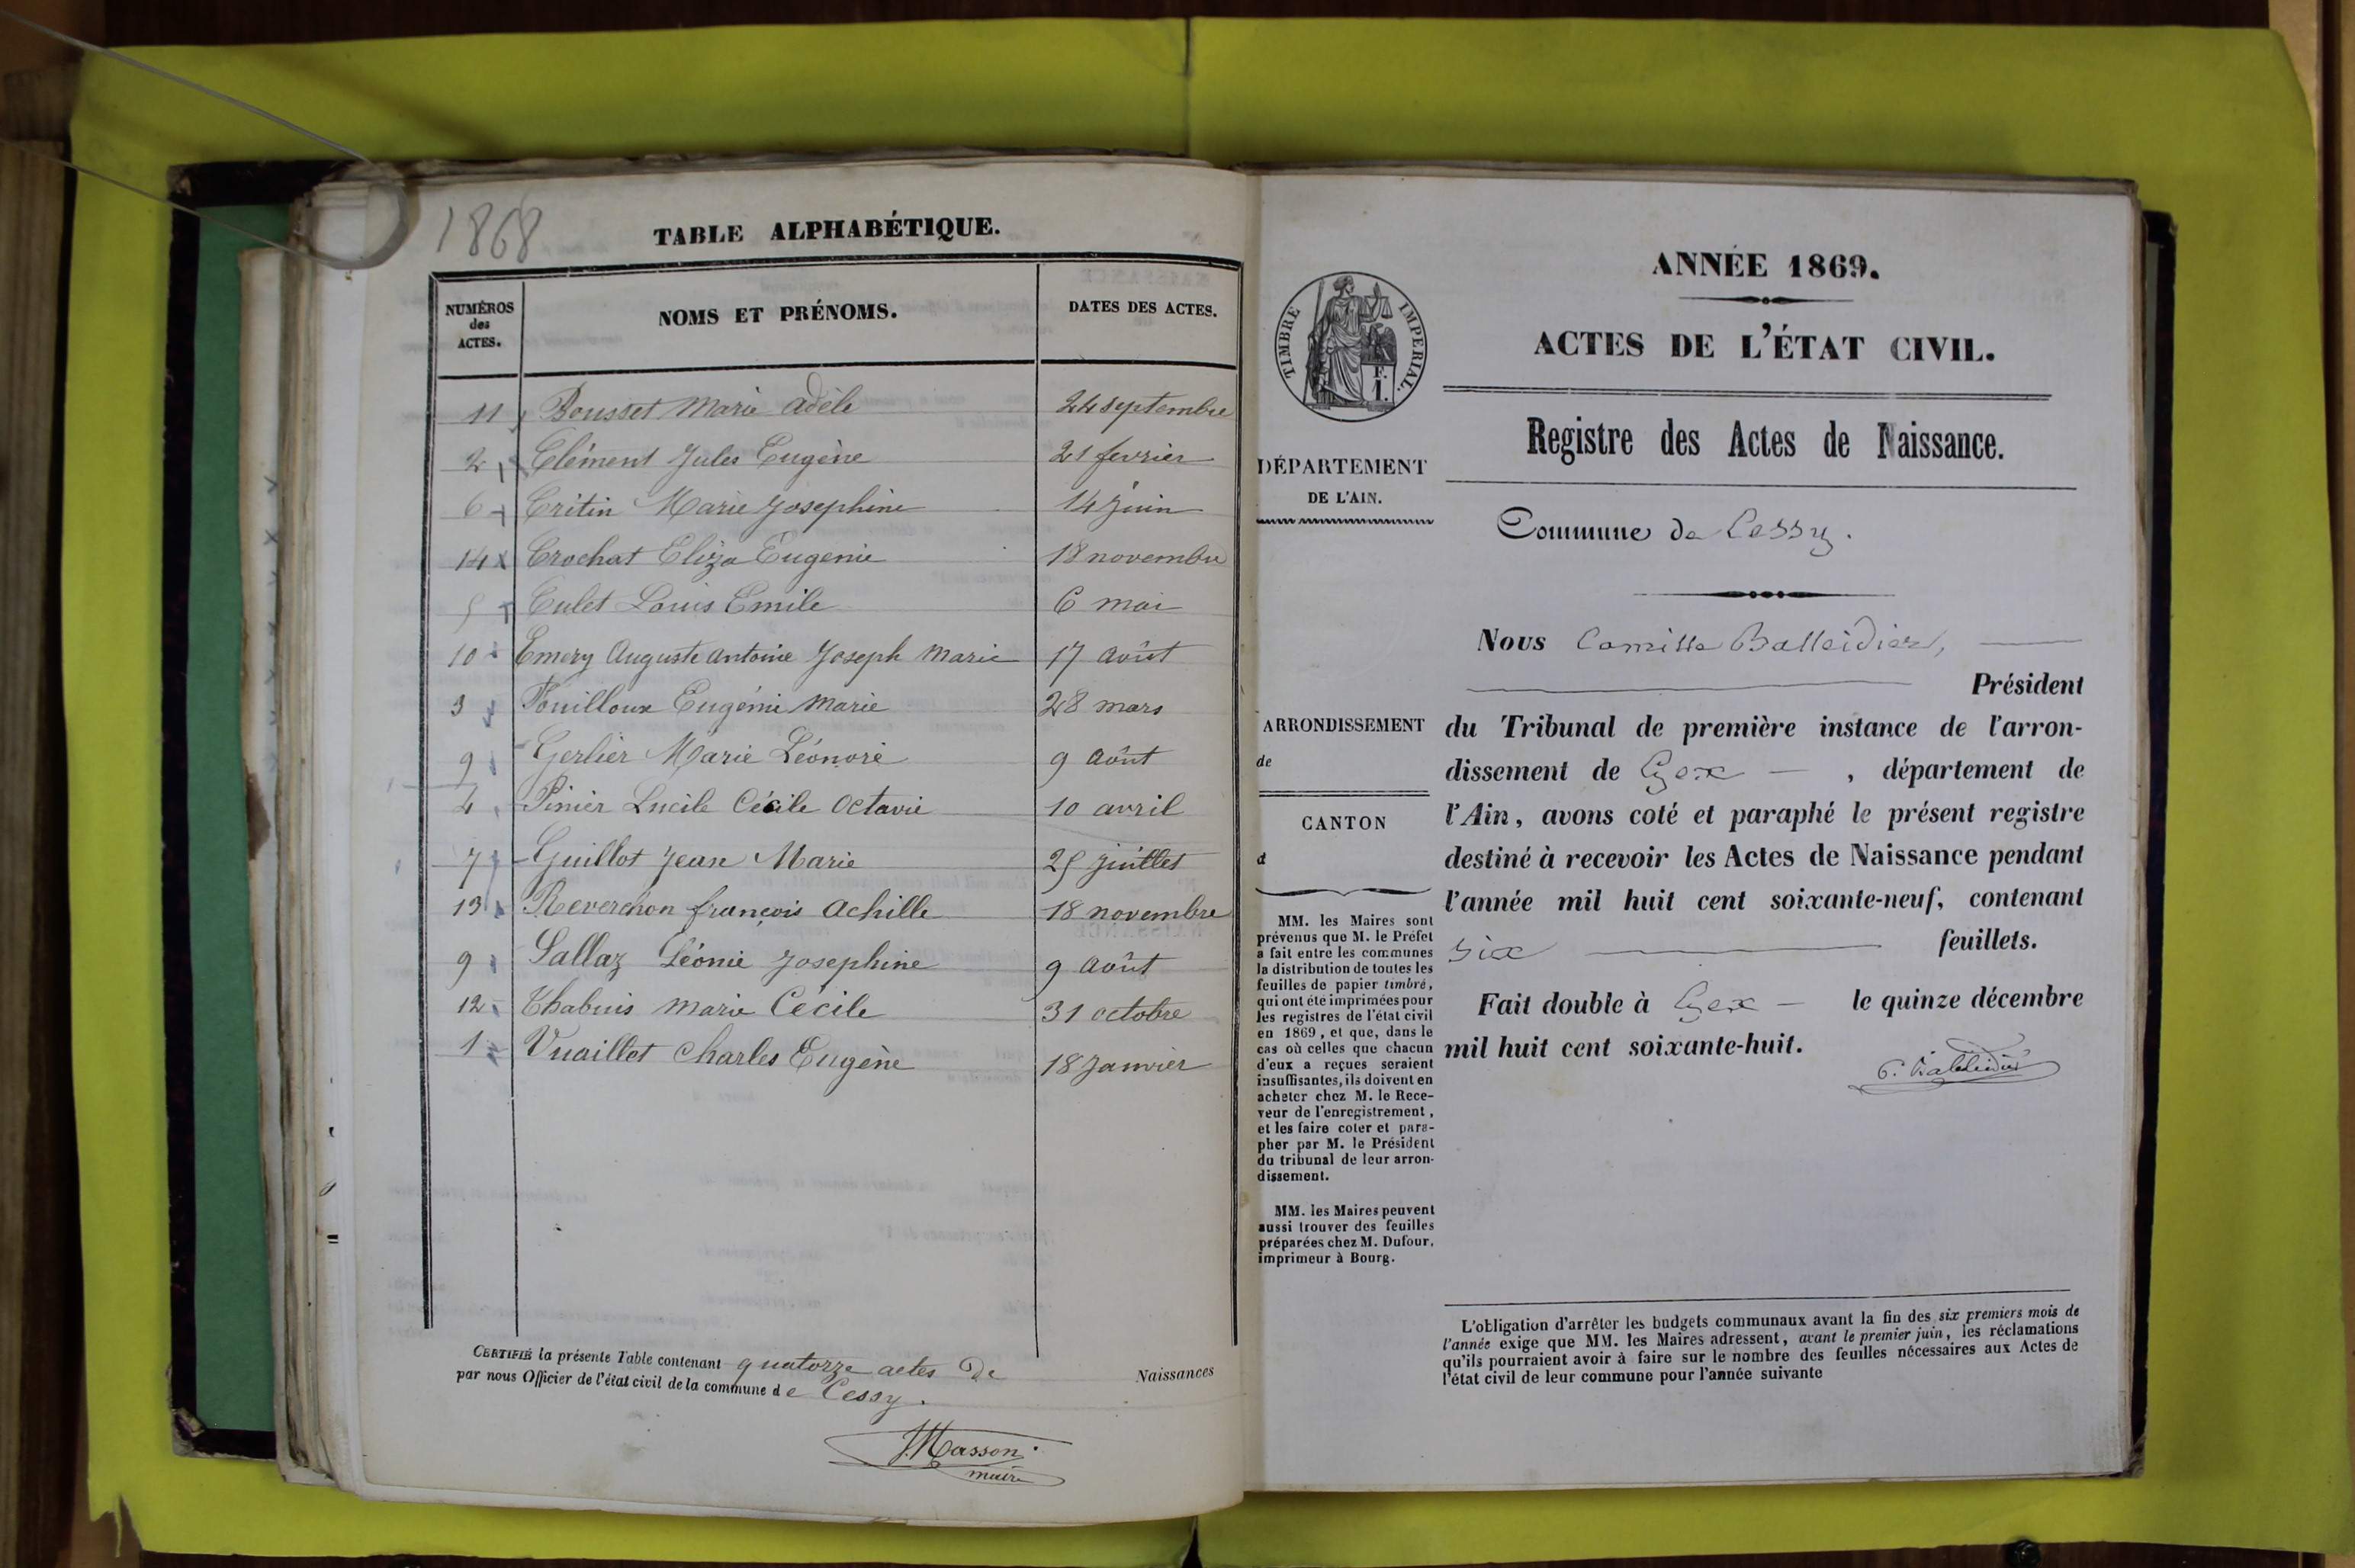 1868
TABLE ALPHABÉTIQUE.
NUMÉROS
des
ACTES.
NOMS ET PRÉNOMS.
DATES DES ACTES.
11 Bousset Marie adèle 24 septembre
2 Clément Jules Eugène 21 fevrier
6 Critin Marie Josephine 14 juin
14 Crochat Eliza Eugenie 18 novembre
5 Culet Louis Emile 6 mai
10 Emery Auguste antoine Joseph Marie 17 août
3 Fouilloux Eugénie Marie 28 mars
9 Gerlier Marie Léonore 9 août
4 Pinier Lucile Cécile Octavie 10 avril
7 Guillot Jean Marie 25 juillet
13 Reverchon françois achille 18 novembre
9 Sallaz Léonie Josephine 9 août
12 Thabuis Marie Cécile 31 octobre
1 Vuaillet Charles Eugène 18 Janvier
CERTIFIÉ la présente Table contenant quatorze actes de Naissances
par nous Officier de l'état civil de la commune de Cessy.
J. Masson
maire
ANNÉE 1869.
ACTES DE L'ÉTAT CIVIL.
Registre des Actes de Naissance.
TIMBRE IMPERIAL.
F.
1.
DÉPARTEMENT
DE L'AIN.
ARRONDISSEMENT
de
CANTON
d
MM. les Maires sont
prévenus que M. le Préfet
a fait entre les communes
la distribution de toutes les
feuilles de papier timbré,
qui ont été imprimées pour
les registres de l'état civil
en 1869, et que, dans le
cas où celles que chacun
d'eux a reçues seraient
insuffisantes, ils doivent en
acheter chez M. le Rece-
veur de l'enregistrement,
et les faire coter et para-
pher par M. le Président
du tribunal de leur arron-
dissement.
MM. les Maires peuvent
aussi trouver des feuilles
préparées chez M. Dufour,
imprimeur à Bourg.
Commune de Cessy.
Nous Camille Balleidier,
Président
du Tribunal de première instance de l'arron-
dissement de Gex, département de
l'Ain, avons coté et paraphé le présent registre
destiné à recevoir les Actes de Naissance pendant
l'année mil huit cent soixante-neuf, contenant
six feuillets.
Fait double à Gex le quinze décembre
mil huit cent soixante-huit.
C. Balleidier
L'obligation d'arrêter les budgets communaux avant la fin des six premiers mois de
l'année exige que MM. les Maires adressent, avant le premier juin, les réclamations
qu'ils pourraient avoir à faire sur le nombre des feuilles nécessaires aux Actes de
l'état civil de leur commune pour l'année suivante